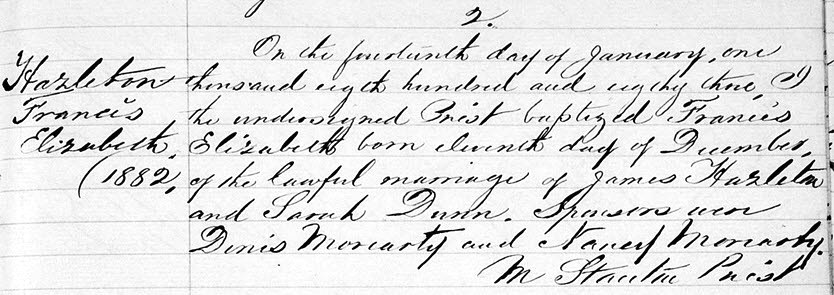 2.
Hazleton
Francis
Elizabeth.
(1882,
On the fourteenth day of January, one
thousand eigth hundred and eighty three, I
the undersigned Priest baptized Francis
Elizabeth born eleventh day of December,
of the lawful marriage of James Hazleton
and Sarah Dunn. Sponsors were
Denis Moriarty and Nancy Moriarty.
M Stanton Priest